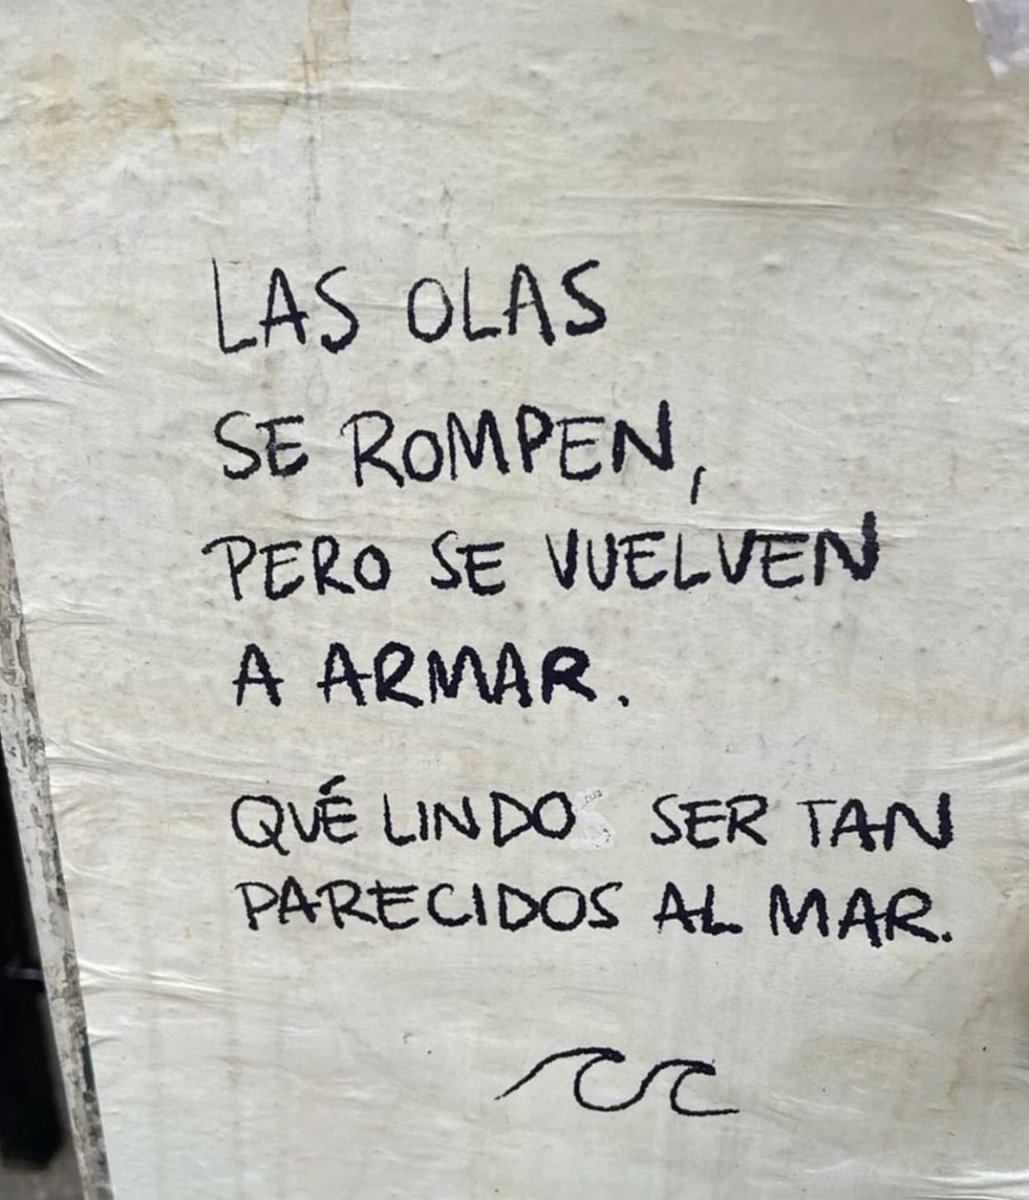 LAS OLAS
SE ROMPEN,
PERO SE VUELVEN
A ARMAR.
QUÉ LINDO SER TAN
PARECIDOS AL MAR.